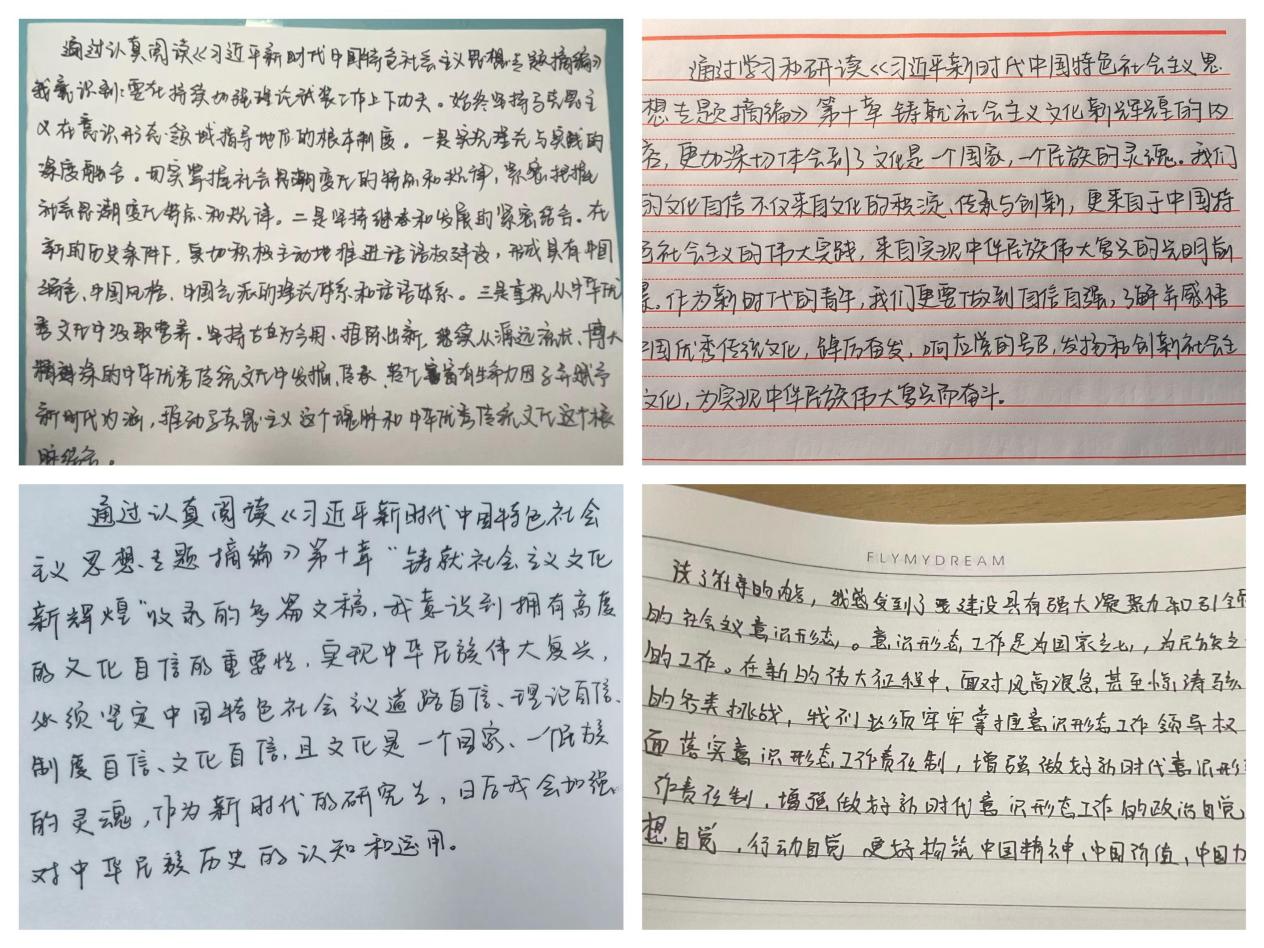 通过认真阅读《习近平新时代中国特色社会主义思想专题摘编》
我意识到：要在持续加强理论武装工作上下功夫。始终坚持马克思主
义在意识形态领域指导地位的根本制度。一是实现理论与实践的
深度融合。切实掌握社会思潮变化的特点和规律，紧密把握
社会思潮变化特点和规律。二是坚持继承和发展的紧密结合。在
新的历史条件下，更加积极主动地推进话语权建设，形成具有中国
特色、中国风格、中国气派的理论体系和话语体系。三是重视从中华优
秀文化中汲取营养。坚持古为今用、推陈出新，继续从源远流长、博大
精深的中华优秀传统文化中发掘、传承、富有生命力因子并赋予
新时代内涵，推动马克思主义这个魂脉和中华优秀传统文化这个根
脉结合。
通过学习和研读《习近平新时代中国特色社会主义思
想专题摘编》第十章 铸就社会主义文化新辉煌的内
容，更加深切体会到了文化是一个国家，一个民族的灵魂。我们
的文化自信不仅来自文化的积淀、传承与创新，更来自于中国特
色社会主义的伟大实践，来自实现中华民族伟大复兴的光明前
景。作为新时代的青年，我们更要做到自信自强，了解并感悟
中国优秀传统文化，踔厉奋发，响应党的号召，发扬和创新社会主
文化，为实现中华民族伟大复兴而奋斗。
通过认真阅读《习近平新时代中国特色社会
主义思想专题摘编》第十章“铸就社会主义文化
新辉煌”收录的多篇文稿，我意识到拥有高度
的文化自信的重要性，实现中华民族伟大复兴，
必须坚定中国特色社会主义道路自信、理论自信、
制度自信、文化自信，且文化是一个国家、一个民族
的灵魂，作为新时代的研究生，日后我会加强
对中华民族历史的认知和运用。
FLYMYDREAM
读了第十章的内容，我感受到了要建设具有强大凝聚力和引领
的社会主义意识形态。意识形态工作是为国家立心，为民族立
的工作。在新的伟大征程中，面对风高浪急甚至惊涛骇
的各类挑战，我们必须牢牢掌握意识形态工作领导权
面落实意识形态工作责任制，增强做好新时代意识形
作责任制，增强做好新时代意识形态工作的政治自觉
想自觉，行动自觉 更好构筑中国精神，中国价值，中国力